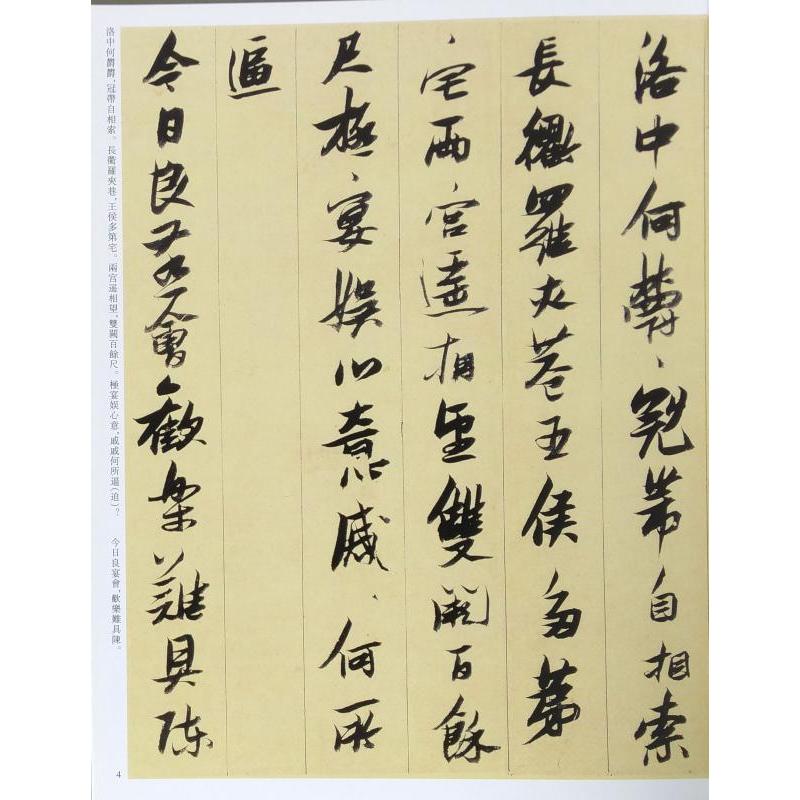 洛中何欝〻冠帶自相索
長衢羅夾巷王侯多第
宅兩宮遥相望雙闕百餘
尺極宴娱心意慼〻何所
逼
今日良宴會歡樂難具陳
洛中何欝欝，冠帶自相索。長衢羅夾巷，王侯多第宅。兩宫遥相望，雙闕百餘尺。極宴娱心意，戚戚何所逼（迫）？　今日良宴會，歡樂難具陳。
4